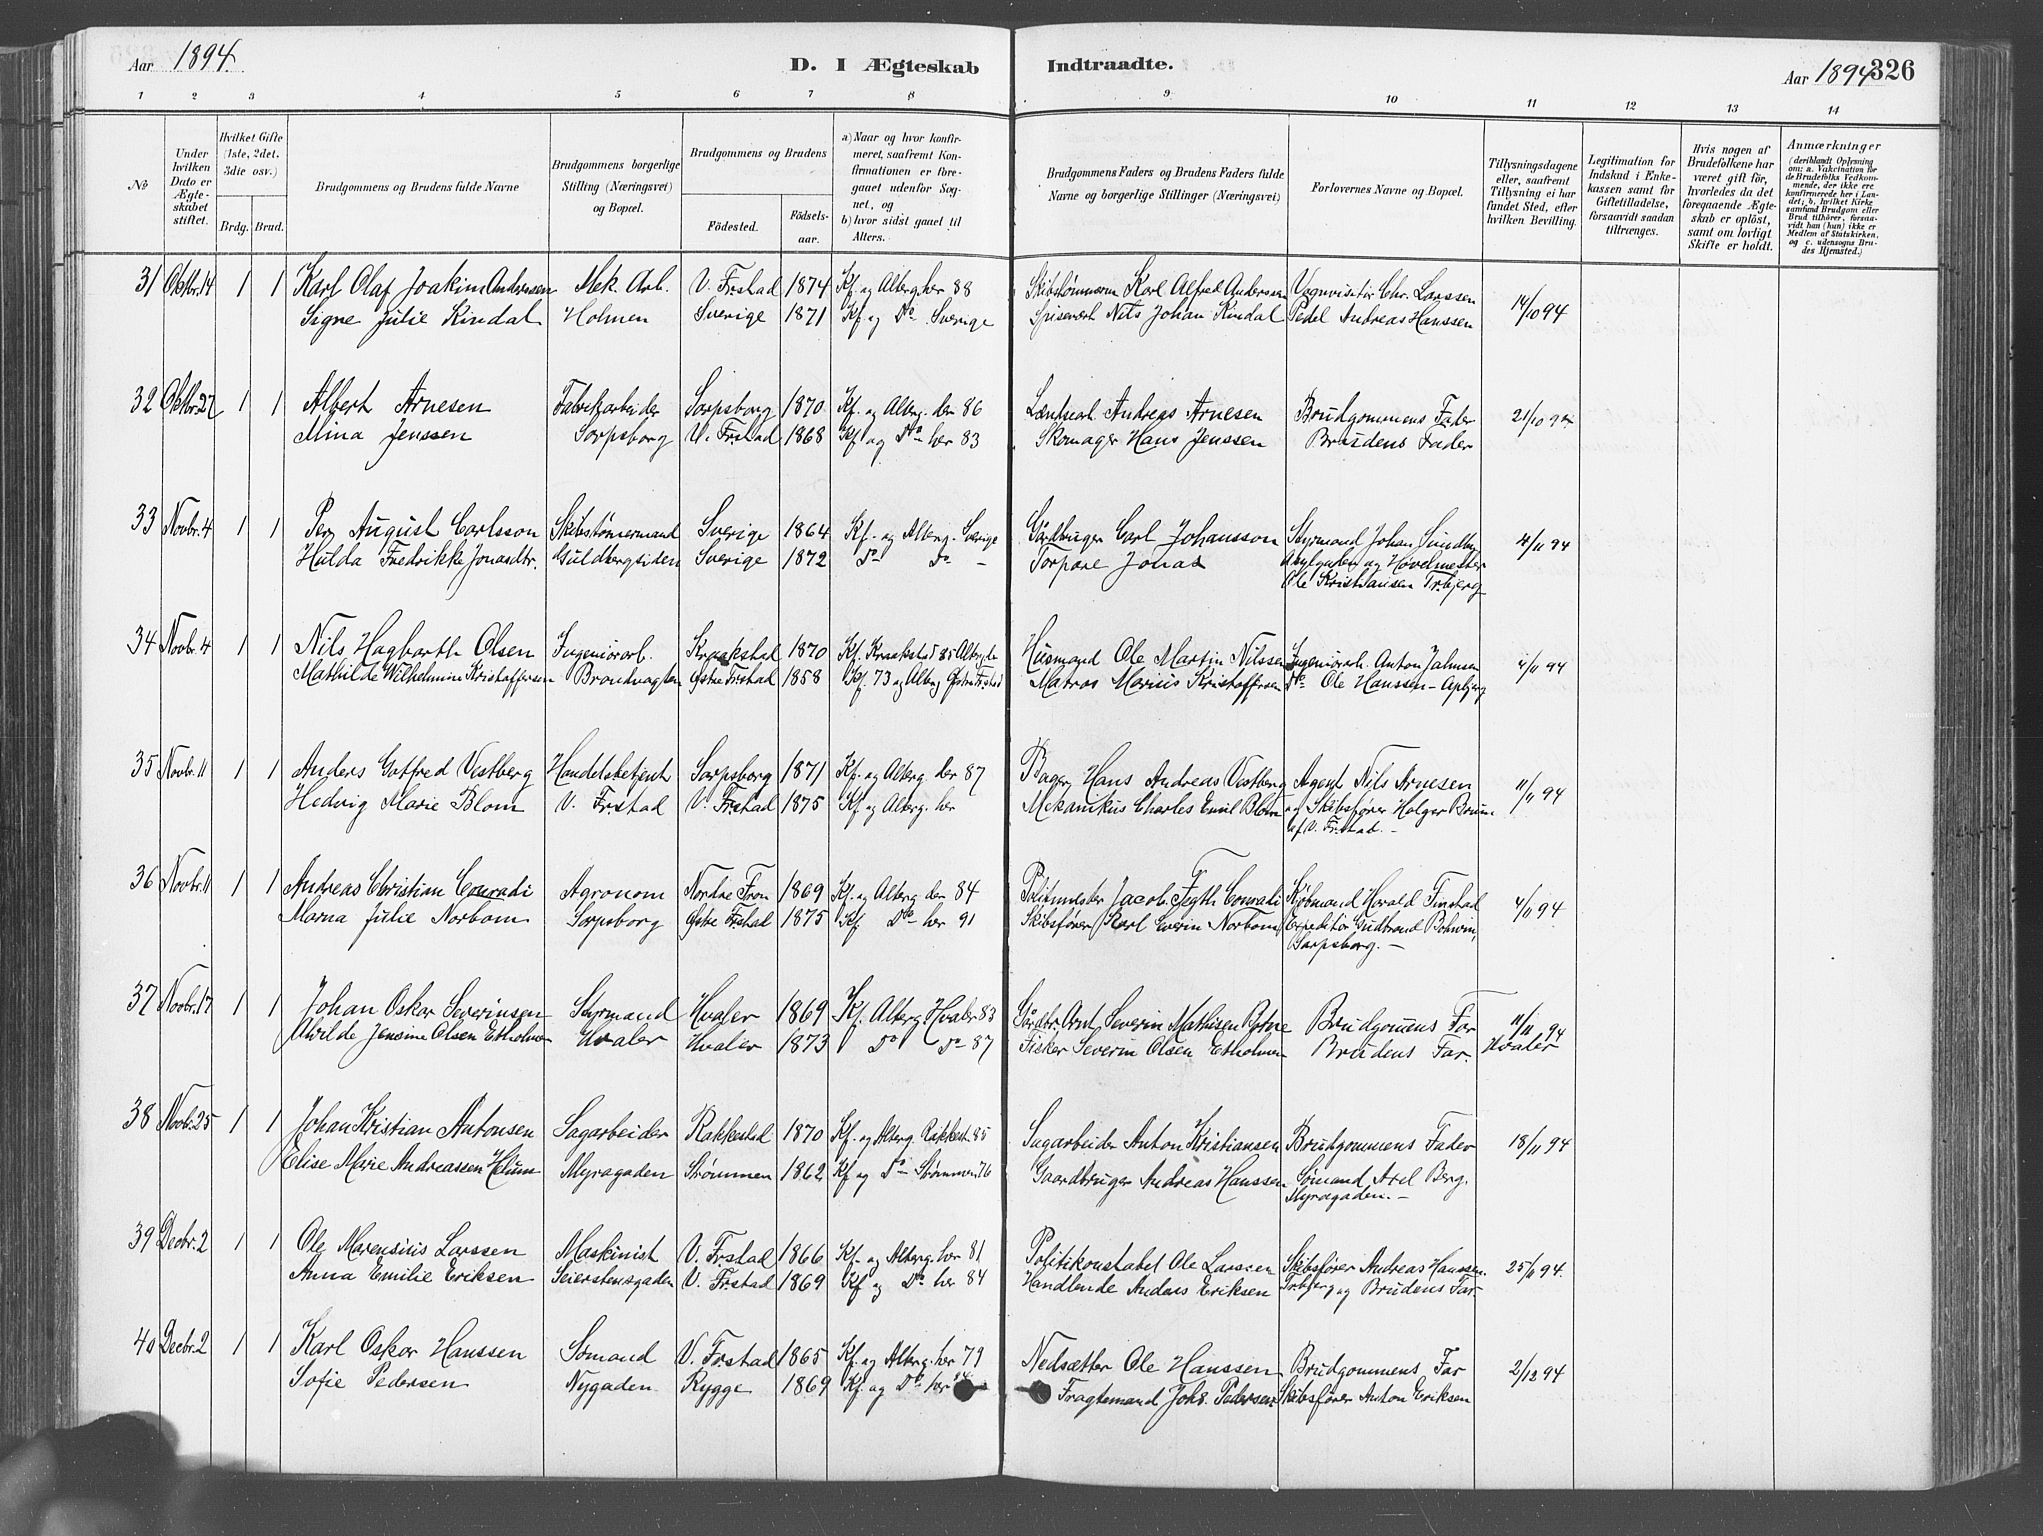 Aar 1894.
D. I Ægteskab Indtraadte.
Aar 1894 326
1 2 3 4 5 6 7 8 9 10 11 12 13 14
No
Under hvilken Dato er Ægteskabet stiftet.
Hvilket Gifte (1ste, 2det, 3dte osv.)
Brdg. Brud.
Brudgommens og Brudens fulde Navne
Brudgommens borgerlige Stilling (Næringsvei) og Bopæl.
Brudgommens og Brudens
Fødested.
Fødselsaar.
a) Naar og hvor konfirmeret, saafremt Konfirmationen er foregaaet udenfor Sognet, og
b) hvor sidst gaaet til Alters.
Brudgommens Faders og Brudens Faders fulde Navne og borgerlige Stillinger (Næringsvei)
Forlovernes Navne og Bopæl.
Tillysningsdagene eller, saafremt Tillysning ei har fundet Sted, efter hvilken Bevilling.
Legitimation for Indskud i Enkekassen samt for Giftetilladelse, forsaavidt saadan tiltrænges.
Hvis nogen af Brudefolkene har været gift før, hvorledes da det foregaaende Ægteskab er opløst, samt om lovligt Skifte er holdt.
Anmærkninger
(deriblandt Oplysning om: a. Vakcination for de Brudefolks Vedkommende, der ikke ere konfirmerede her i Landet; b. hvilket Kirkesamfund Brudgom eller Brud tilhører, forsaavidt han (hun) ikke er Medlem af Statskirken, og c. udensogns Brudes Hjemsted.)
31 Oktbr. 14 1 1 Karl Olaf Joakim Anderssen Mek. Arb. V. Frstad 1874 Kf. og Alterg. her 88 Skibstømmerm Karl Alfred Anderssen Vognvisitör Chr. Larssen 14/10 94
Signe Julie Kindal Holmen Sverige 1871 Kf. og Do Sverige Spisevært Nils Johan Kindal Pedel Andreas Hanssen
32 Oktbr. 27 1 1 Albert Arnesen Fabrikarbeider Sarpsborg 1870 Kf. og Alterg. der 86 Landsarb. Andreas Arnesen Brudgommens Fader 21/10 94
Mina Jenssen Sarpsborg V. Frstad 1868 Kf og Do her 83 Skomager Hans Jenssen Brudens Fader
33 Novbr. 4 1 1 Per August Carlsson Skibstömermand Sverige 1864 Kf. og Alterg. Sverige Gårdbruger Carl Johansson Styrmand Johan Sundby 4/11 94
Hulda Fredrikke Jonasdtr. Guldbergsiden Sverige 1872 Do Do - Torpare Jonas Asylgaden og Høvelmester
Ole Kristiansen Trbjerg
34 Novbr. 4 1 1 Nils Hagbarth Olsen Ingeniörarb. Kraakstad 1870 Kf. Kraakstad 85 Alterg. do Husmand Ole Martin Nilssen Ingeniörarb. Anton Jahnsen 4/11 94
Mathilde Wilhelmine Kristoffersen Brondvagten Østre Frstad 1858 Kf. 73 og Alterg Østre Frstad Matros Marius Kristoffersen Do Ole Hanssen - Apbjerg
35 Novbr. 11 1 1 Anders Gotfred Vestberg Handelsbetjent Sarpsborg 1871 Kf. og Alterg. der 87 Bager Hans Andreas Vestberg Agent Nils Arnesen 11/11 94
Hedvig Marie Blom V. Frstad V. Frstad 1875 Kf og Alterg. her Mekanikus Charles Emil Blom og Skibsfører Holger Bruun
af V. Frstad. -
36 Novbr. 11 1 1 Andreas Christian Conradi Agronom Nordre Fron 1869 Kf. og Alterg der 84 Politimester Jacob Fegth Conradi Kjøbmand Harald Finstad 4/11 94
Marna Julie Norbom Sarpsborg Østre Frstad 1875 Kf. Do her 91 Skibsfører Karl Everin Norbom Expeditör Gudbrand Bohwim,
Sarpsborg. -
37 Novbr. 17 1 1 Johan Oskar Severinsen Styrmand Hvaler 1869 Kf. Alterg. Hvaler 83 Gårdbr. Arnt Severin Mathisen Botne Brudgomens Far 11/11 94
Alvilde Jensine Olsen Etholmen Hvaler Hvaler 1873 Do Do 87 Fisker Severin Olsen Etholmen Brudens Far. Hvaler
38 Novbr. 25 1 1 Johan Kristian Antonsen Sagarbeider Rakkestad 1870 Kf. og Alterg. Rakkest. 85 Sagarbeider Anton Kristiansen Brudgommens Fader 18/11 94
Elise Marie Andreassen Helum Myragaden Strømmen 1862 Kf og Do Strømmen 76 Gaardbruger Andreas Hanssen Sømand Axel Berg.
Myragaden. -
39 Decbr. 2 1 1 Ole Marensius Larssen Maskinist V. Frstad 1866 Kf. og Alterg. her 81 Politikonstabel Ole Larssen Skibsfører Andreas Hanssen. 25/11 94.
Anna Emilie Eriksen Seierstensgaden V. Frstad 1869 Kf og Do her 84 Handlende Anders Eriksen Trbjerg og Brudens Far
40 Decbr. 2 1 1 Karl Oskar Hanssen Sømand V. Frstad 1865 Kf. og Alterg. her 79 Nedsætter Ole Hanssen Brudgommens Far 2/12 94
Sofie Pedersen Nygaden Rygge 1869 Kf. og Do her Fragtemand Johs. Pedersen Skibsfører Anton Eriksen